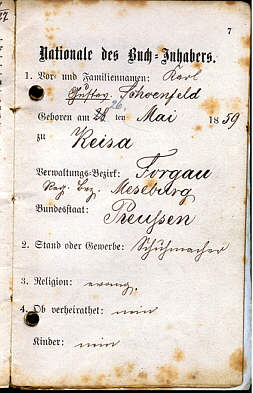 7
Nationale des Buch-Inhabers.
1. Vor- und Familiennamen: Karl
Gustav Schoenfeld
26
Geboren am 28 ten Mai 1859
zu
Keisa
Verwaltungs-Bezirk: Torgau
Reg. Bez. Meseburg
Bundesstaat: Preussen
2. Stand oder Gewerbe: Schuhmacher
3. Religion: evang.
4. Ob verheirathet: nein
Kinder: nein